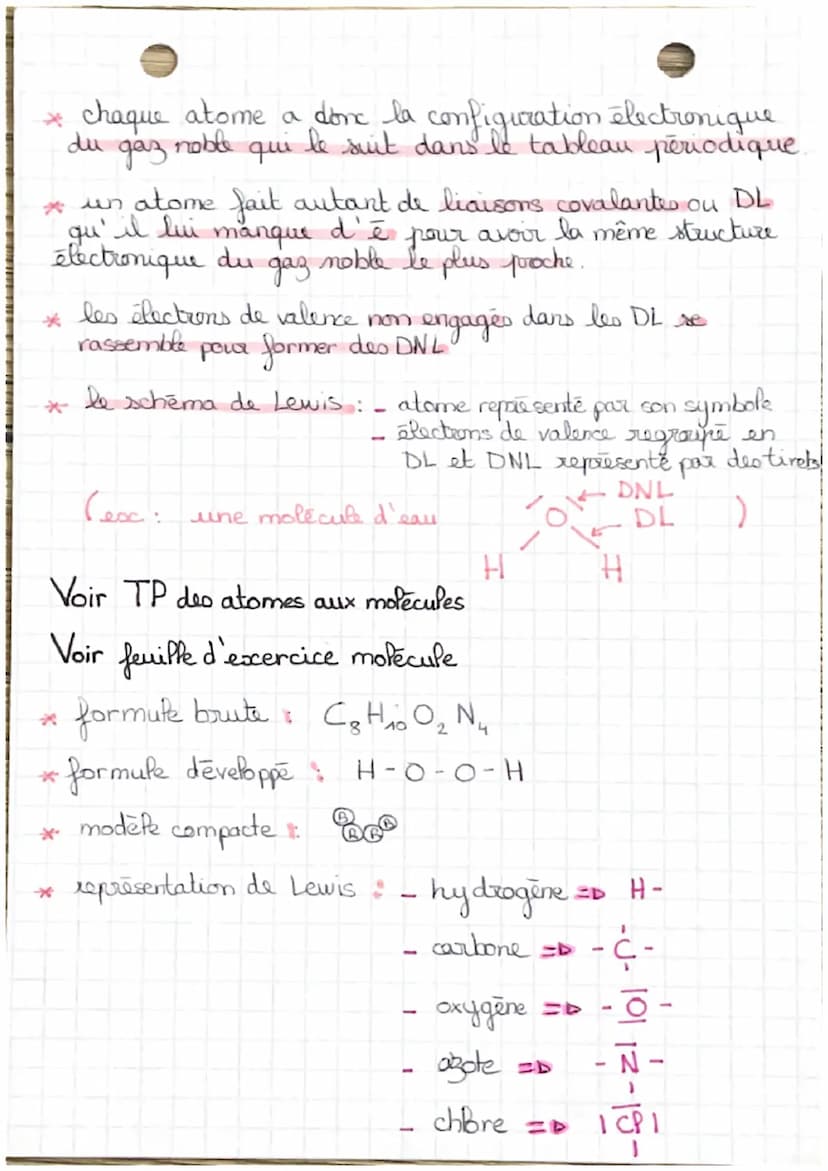 * chaque atome a donc la configuration électronique
du gaz noble qui le suit dans le tableau périodique
* un atome fait autant de liaisons covalantes ou DL
qu'il lui manque d'ē pour avoir la même structure
électronique du gaz noble le plus proche.
* les électrons de valence non engagés dans les DL se
rassemble pour former des DNL
* le schéma de Lewis : - atome représenté par son symbole
- électrons de valence regroupé en
DL et DNL représenté par des tirets
(exc : une molécule d'eau
DNL
O DL )
H H
Voir TP des atomes aux molécules
Voir feuille d'excercice molécule
* formule brute : C₈H₁₀O₂N₄
* formule développé : H-O-O-H
* modèle compacte :
* représentation de Lewis : - hydrogène => H-
- carbone => -C-
- oxygène => -O-
- azote => -N-
- chlore => |Cl|